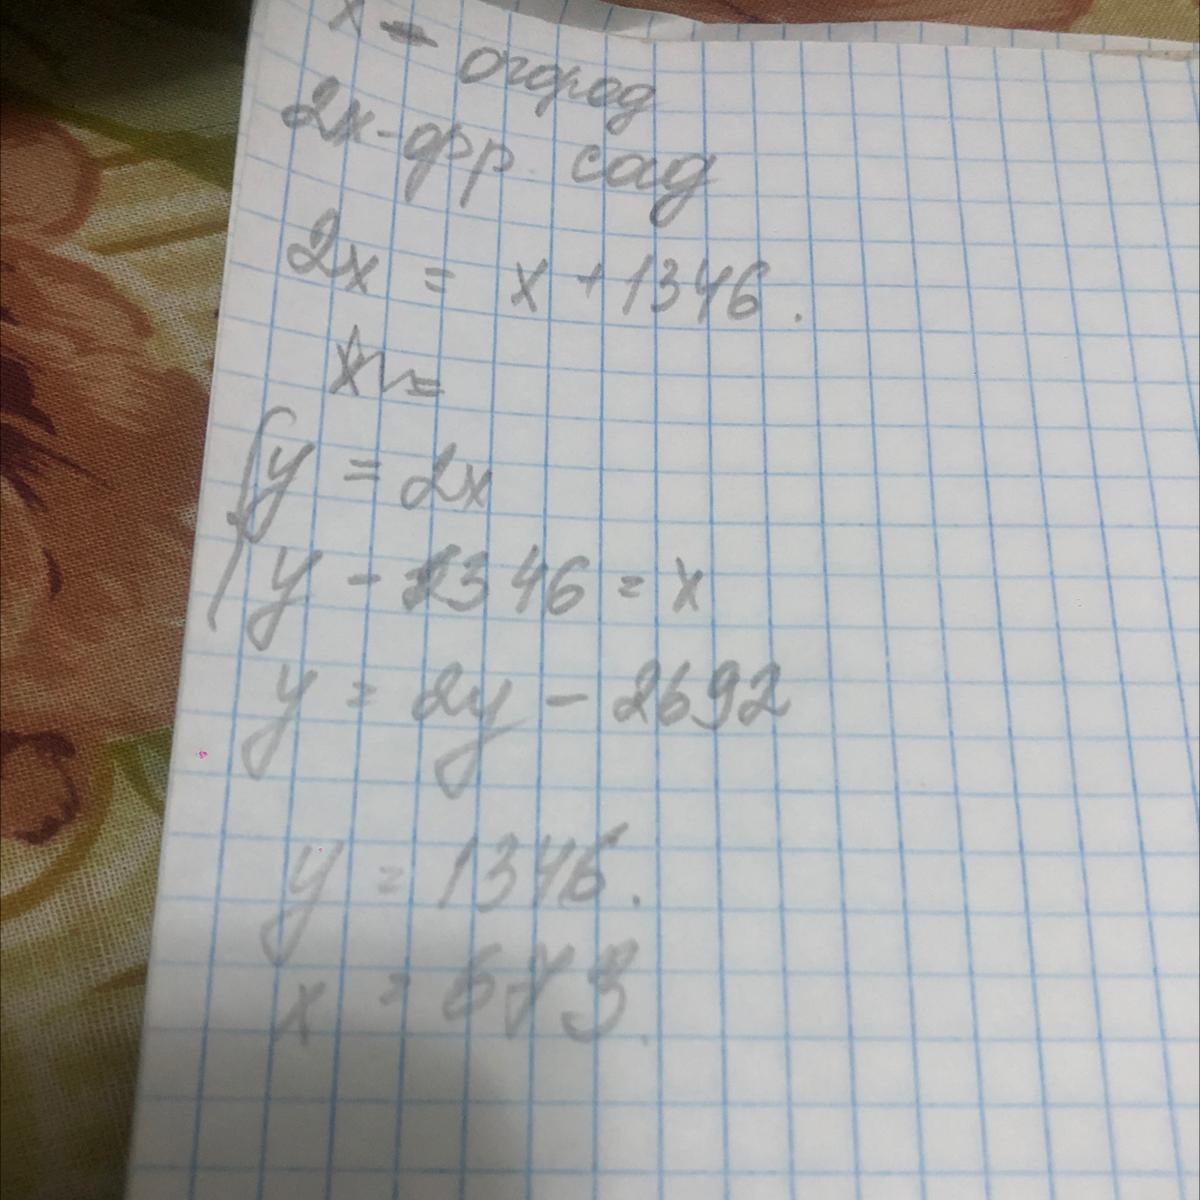 x - огород
2x - фр. сад
2x = x + 1346.
y = 2x
y - 1346 = x
y = 2y - 2692
y = 1346.
x = 673.